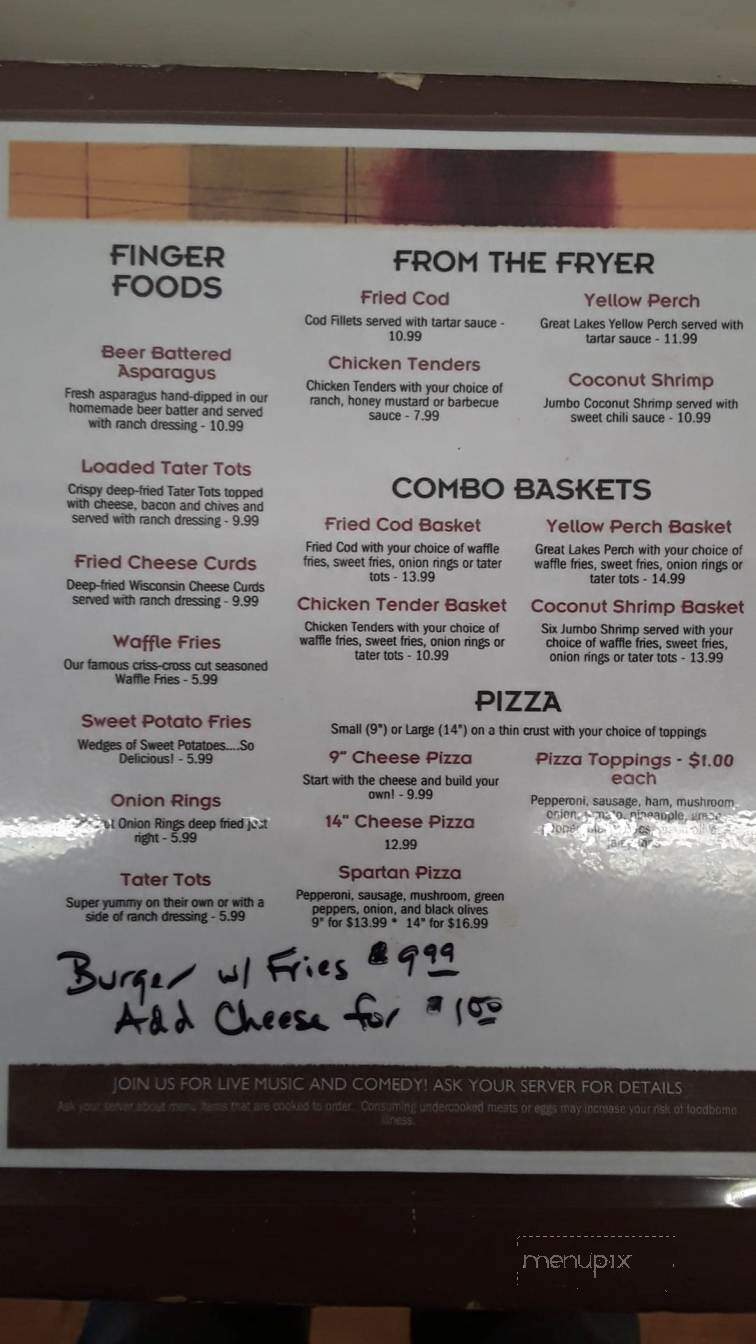 FINGER
FOODS
Beer Battered
Asparagus
Fresh asparagus hand-dipped in our
homemade beer batter and served
with ranch dressing - 10.99
Loaded Tater Tots
Crispy deep-fried Tater Tots topped
with cheese, bacon and chives and
served with ranch dressing - 9.99
Fried Cheese Curds
Deep-fried Wisconsin Cheese Curds
served with ranch dressing - 9.99
Waffle Fries
Our famous criss-cross cut seasoned
Waffle Fries - 5.99
Sweet Potato Fries
Wedges of Sweet Potatoes....So
Delicious! - 5.99
Onion Rings
Onion Rings deep fried just
right - 5.99
Tater Tots
Super yummy on their own or with a
side of ranch dressing - 5.99
FROM THE FRYER
Fried Cod
Cod Fillets served with tartar sauce -
10.99
Chicken Tenders
Chicken Tenders with your choice of
ranch, honey mustard or barbecue
sauce - 7.99
Yellow Perch
Great Lakes Yellow Perch served with
tartar sauce - 11.99
Coconut Shrimp
Jumbo Coconut Shrimp served with
sweet chili sauce - 10.99
COMBO BASKETS
Fried Cod Basket
Fried Cod with your choice of waffle
fries, sweet fries, onion rings or tater
tots - 13.99
Chicken Tender Basket
Chicken Tenders with your choice of
waffle fries, sweet fries, onion rings or
tater tots - 10.99
Yellow Perch Basket
Great Lakes Perch with your choice of
waffle fries, sweet fries, onion rings or
tater tots - 14.99
Coconut Shrimp Basket
Six Jumbo Shrimp served with your
choice of waffle fries, sweet fries,
onion rings or tater tots - 13.99
PIZZA
Small (9") or Large (14") on a thin crust with your choice of toppings
9" Cheese Pizza
Start with the cheese and build your
own! - 9.99
14" Cheese Pizza
12.99
Spartan Pizza
Pepperoni, sausage, mushroom, green
peppers, onion, and black olives
9" for $13.99 * 14" for $16.99
Pizza Toppings - $1.00
each
Pepperoni, sausage, ham, mushroom,
onion, tomato, pineapple, green
Burger w/ Fries $9.99
Add Cheese for $1.00
JOIN US FOR LIVE MUSIC AND COMEDY! ASK YOUR SERVER FOR DETAILS
Ask your server about menu items that are cooked to order. Consuming undercooked meats or eggs may increase your risk of foodborne
illness.
menupix